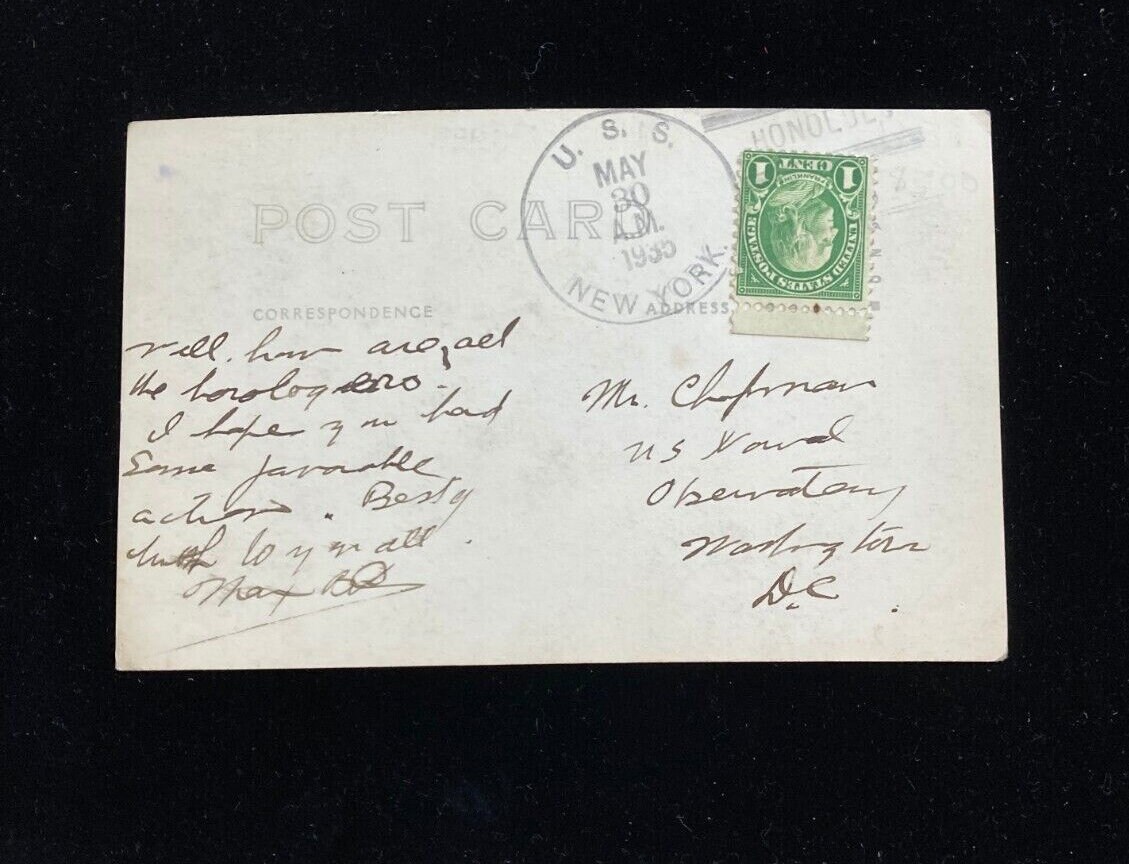 U. S. S.
MAY
30
A.M.
1935
NEW YORK.
HONOLULU
1 CENT 1
FRANKLIN
UNITED STATES POSTAGE
POST CARD
CORRESPONDENCE
ADDRESS
Well. how are all
the horologers.
I hope you had
Some favorable
action. Best
luck to you all.
Max
Mr. Chapman
US Naval
Observatory
Washington
D.C.